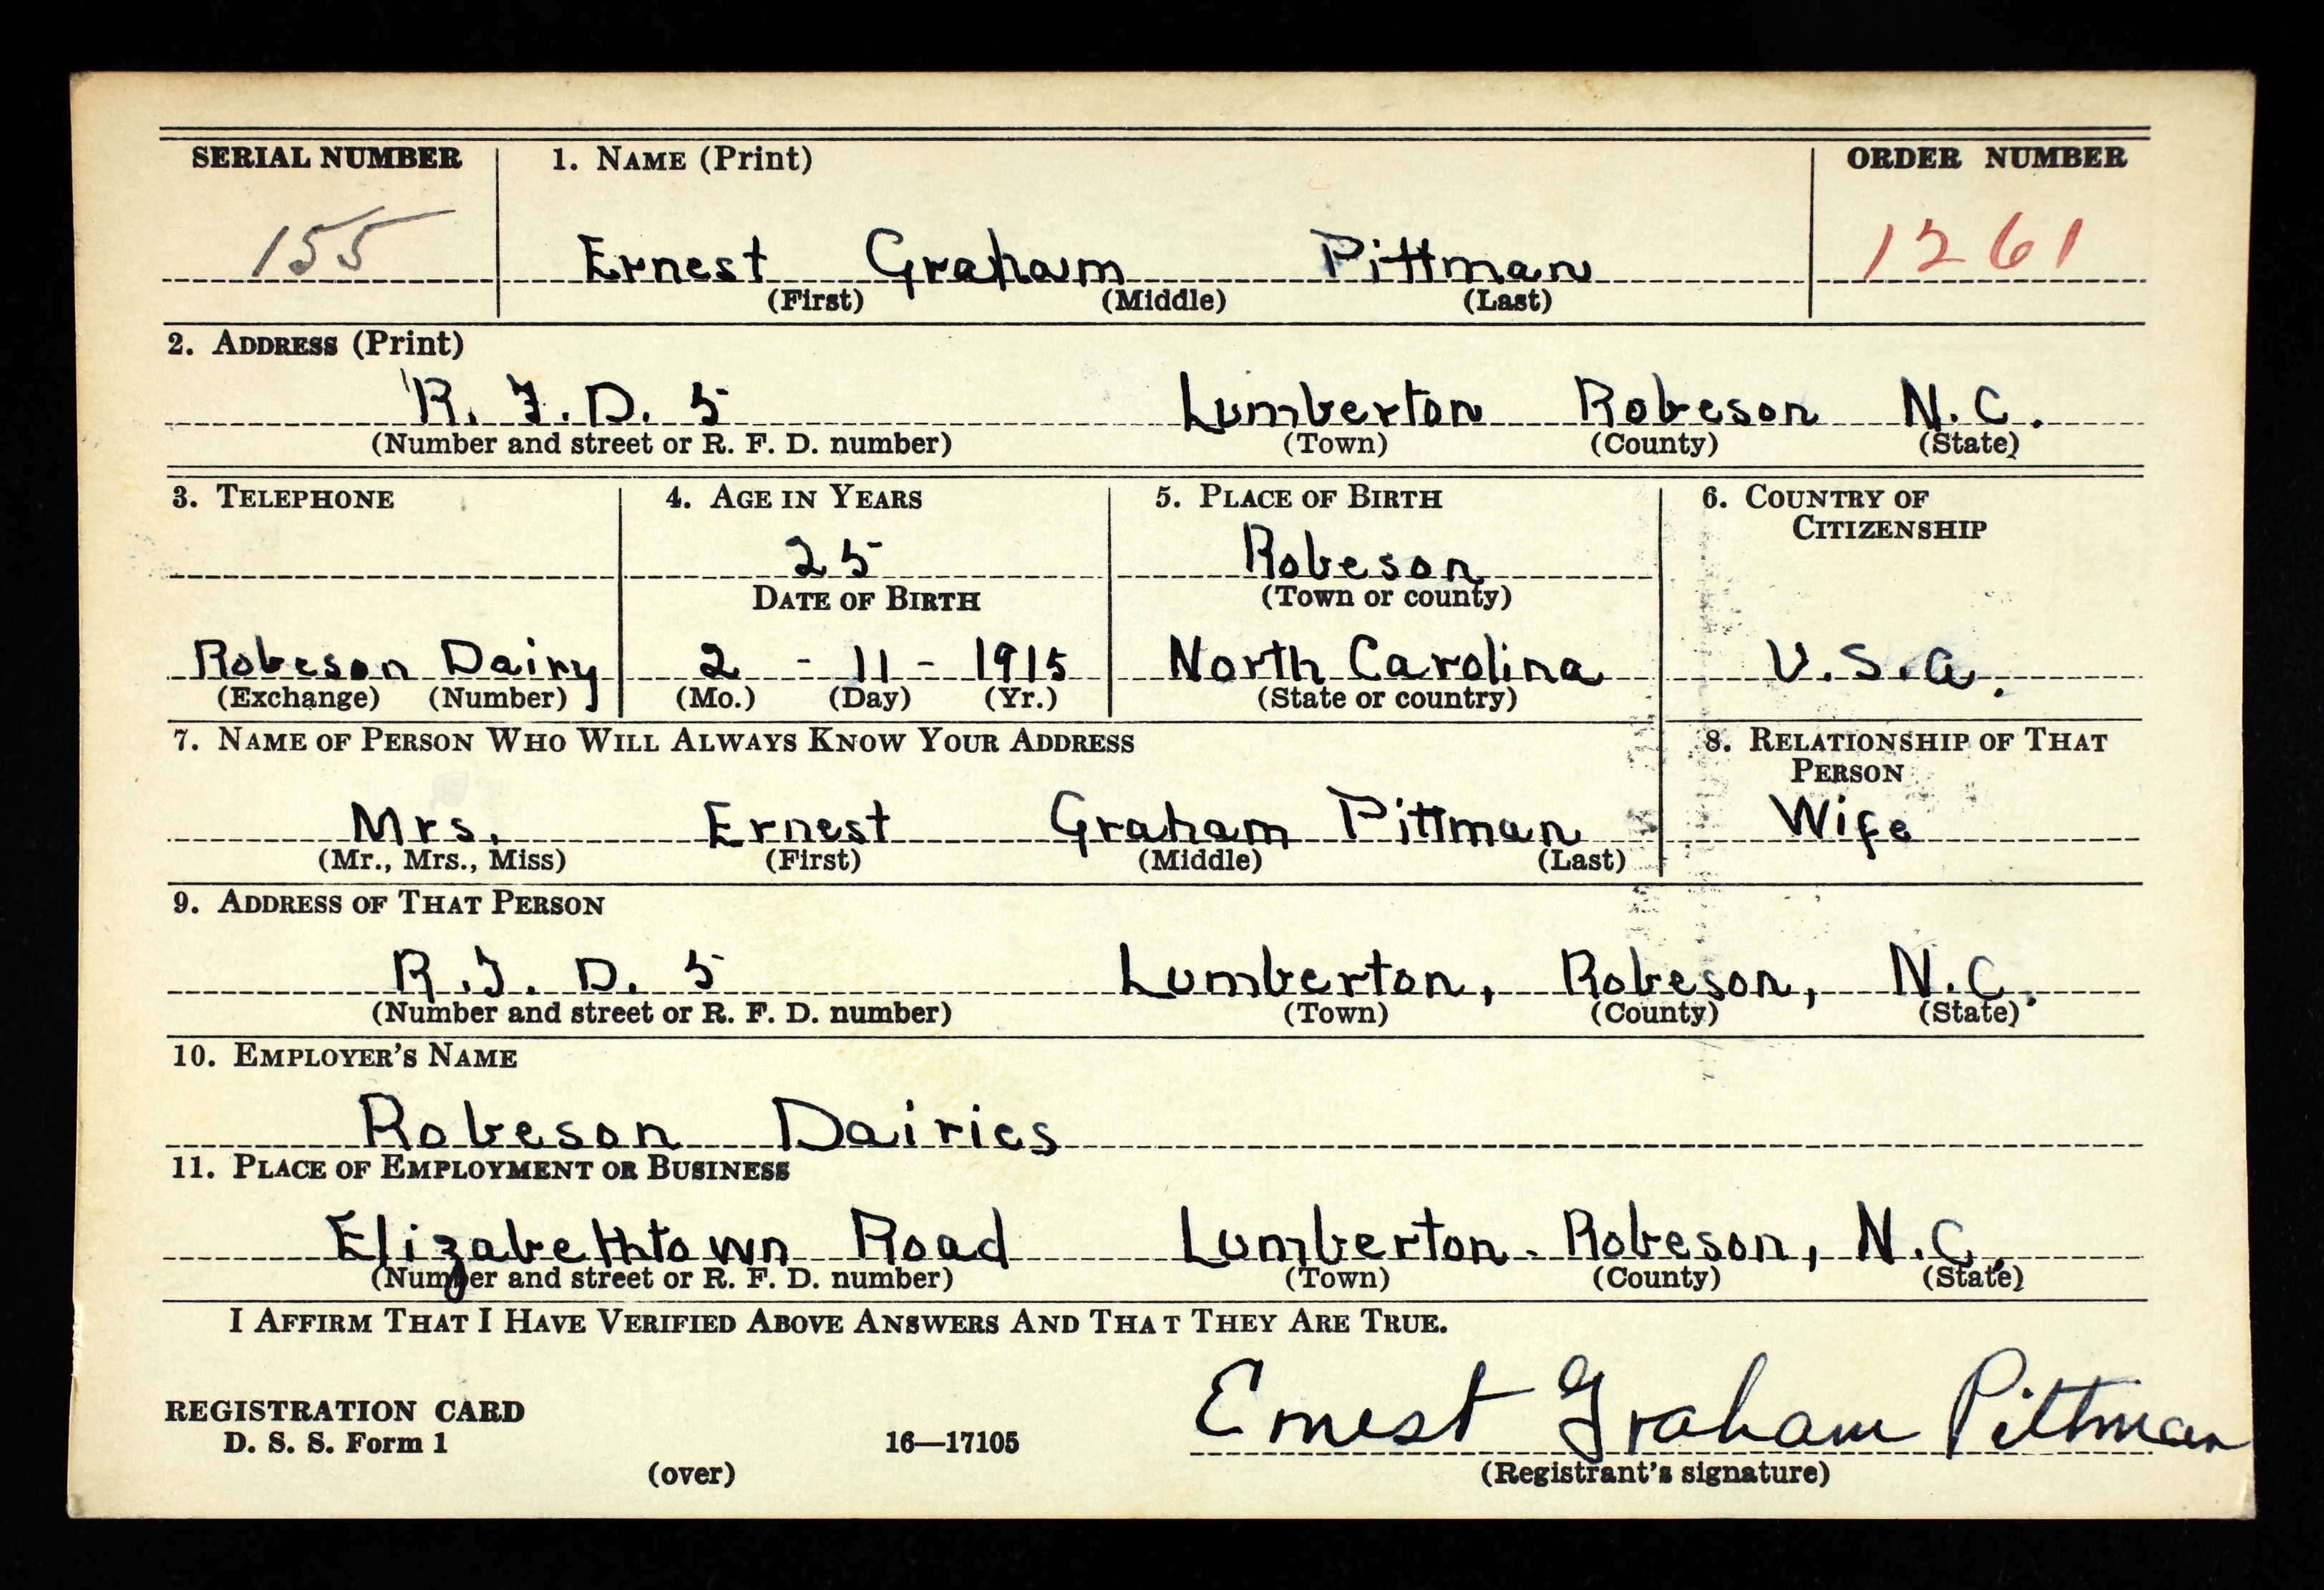 SERIAL NUMBER 1. NAME (Print) ORDER NUMBER
155 Ernest Graham Pittman 1261
(First) (Middle) (Last)
2. ADDRESS (Print)
R. F. D. 5 Lumberton Robeson N.C.
(Number and street or R. F. D. number) (Town) (County) (State)
3. TELEPHONE 4. AGE IN YEARS 5. PLACE OF BIRTH 6. COUNTRY OF
CITIZENSHIP
25 Robeson
DATE OF BIRTH (Town or county)
Robeson Dairy 2 - 11 - 1915 North Carolina U.S.a.
(Exchange) (Number) (Mo.) (Day) (Yr.) (State or country)
7. NAME OF PERSON WHO WILL ALWAYS KNOW YOUR ADDRESS 8. RELATIONSHIP OF THAT
PERSON
Mrs. Ernest Graham Pittman Wife
(Mr., Mrs., Miss) (First) (Middle) (Last)
9. ADDRESS OF THAT PERSON
R.F. D. 5 Lumberton, Robeson, N.C.
(Number and street or R. F. D. number) (Town) (County) (State)
10. EMPLOYER'S NAME
Robeson Dairies
11. PLACE OF EMPLOYMENT OR BUSINESS
Elizabethtown Road Lumberton. Robeson, N.C.
(Number and street or R. F. D. number) (Town) (County) (State)
I AFFIRM THAT I HAVE VERIFIED ABOVE ANSWERS AND THAT THEY ARE TRUE.
Ernest Graham Pittman
REGISTRATION CARD
D. S. S. Form 1 16—17105
(over) (Registrant's signature)